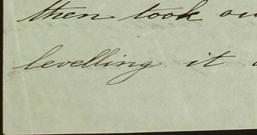 then took ou
levelling it